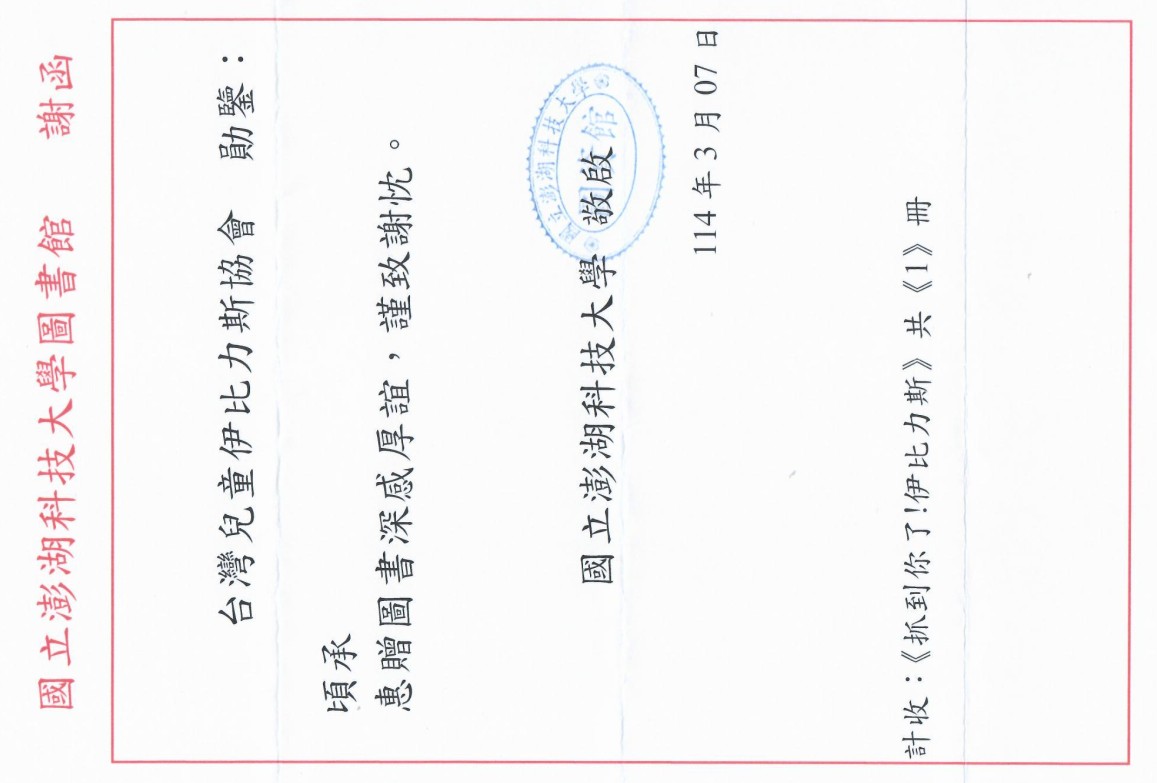 國立澎湖科技大學圖書館 謝函
台灣兒童伊比力斯協會 勛鑒：
頃承
惠贈圖書深感厚誼，謹致謝忱。
國立澎湖科技大學 敬啟
國立澎湖科技大學
圖書館
114 年 3 月 07 日
計收：《抓到你了!伊比力斯》共《1》冊